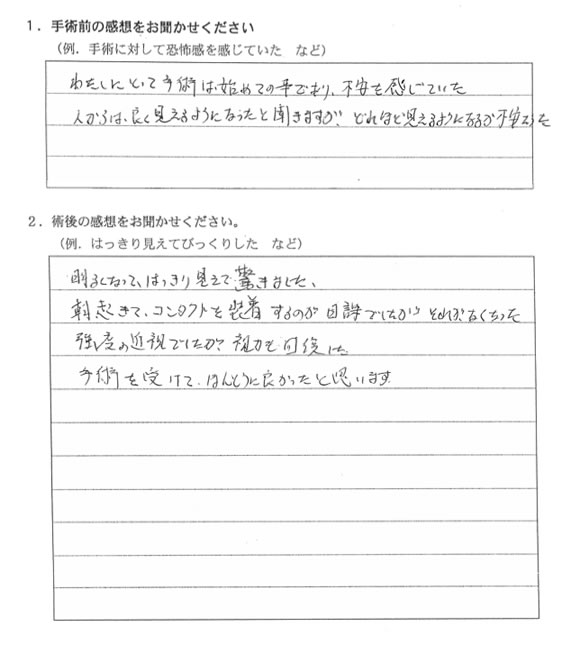 1．手術前の感想をお聞かせください
（例．手術に対して恐怖感を感じていた　など）
わたしにとって手術は始めての事であり、不安を感じていた
人からは、良く見えるようになったと聞きますが、どれほど見えるようになるか不安だった
2．術後の感想をお聞かせください。
（例．はっきり見えてびっくりした　など）
明るくなって、はっきり見えて驚きました、
朝起きて、コンタクトを装着するのが日課でしたが それがなくなった
強度の近視でしたが 視力も回復した
手術を受けて、ほんとうに良かったと思います